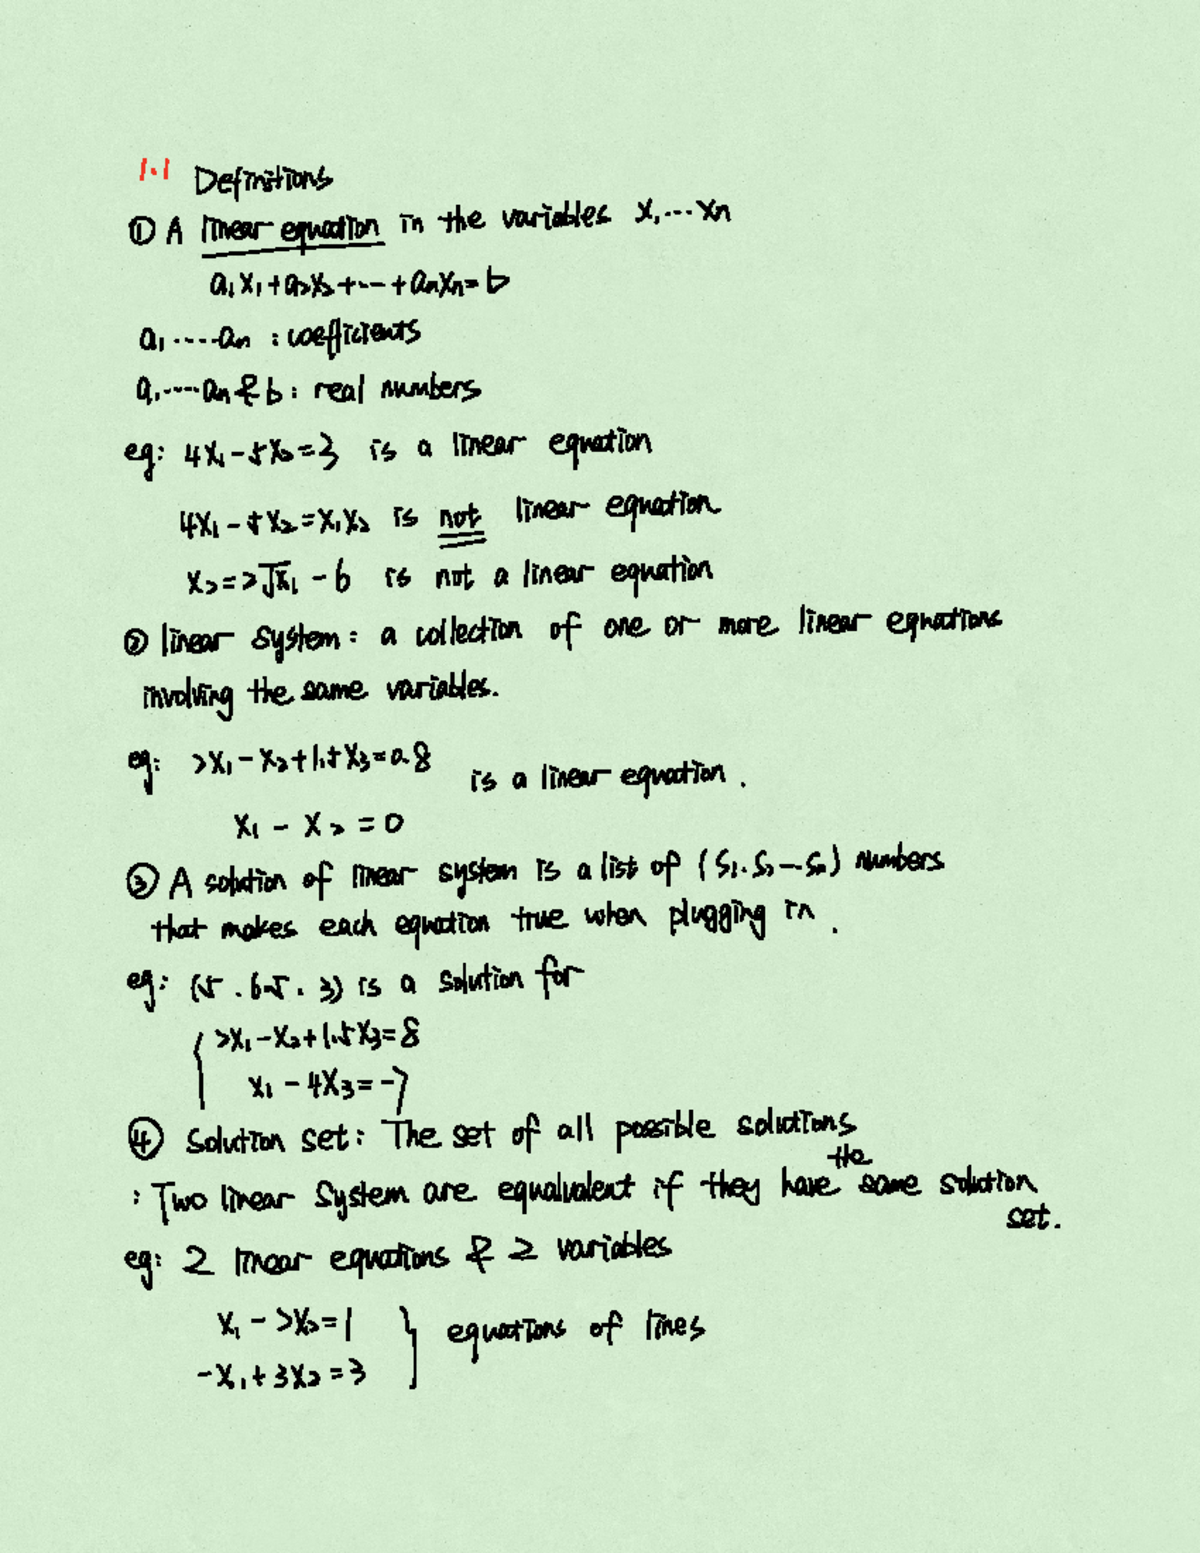 1.1 Definitions
① A linear equation in the variables x₁...xn
a₁x₁+a₂x₂+...+anxn=b
a₁.....an : coefficients
a₁.....an & b: real numbers
eg: 4x₁-5x₂=3 is a linear equation
4x₁-5x₂=x₁x₂ is not linear equation
x₂=2√x₁ -6 is not a linear equation
② linear system: a collection of one or more linear equations
involving the same variables.
eg: 2x₁-x₂+1.5x₃=0.8
is a linear equation.
x₁ - x₂ = 0
③ A solution of linear system is a list of (s₁.s₂--sn) numbers
that makes each equation true when plugging in.
eg: (5. 6.5. 3) is a solution for
{ 2x₁-x₂+1.5x₃=8
x₁-4x₃=-7
④ Solution set: The set of all possible solutions
: Two linear system are equalvalent if they have the same solution
set.
eg: 2 linear equations & 2 variables
x₁-2x₂=1 } equations of lines
-x₁+3x₂=3